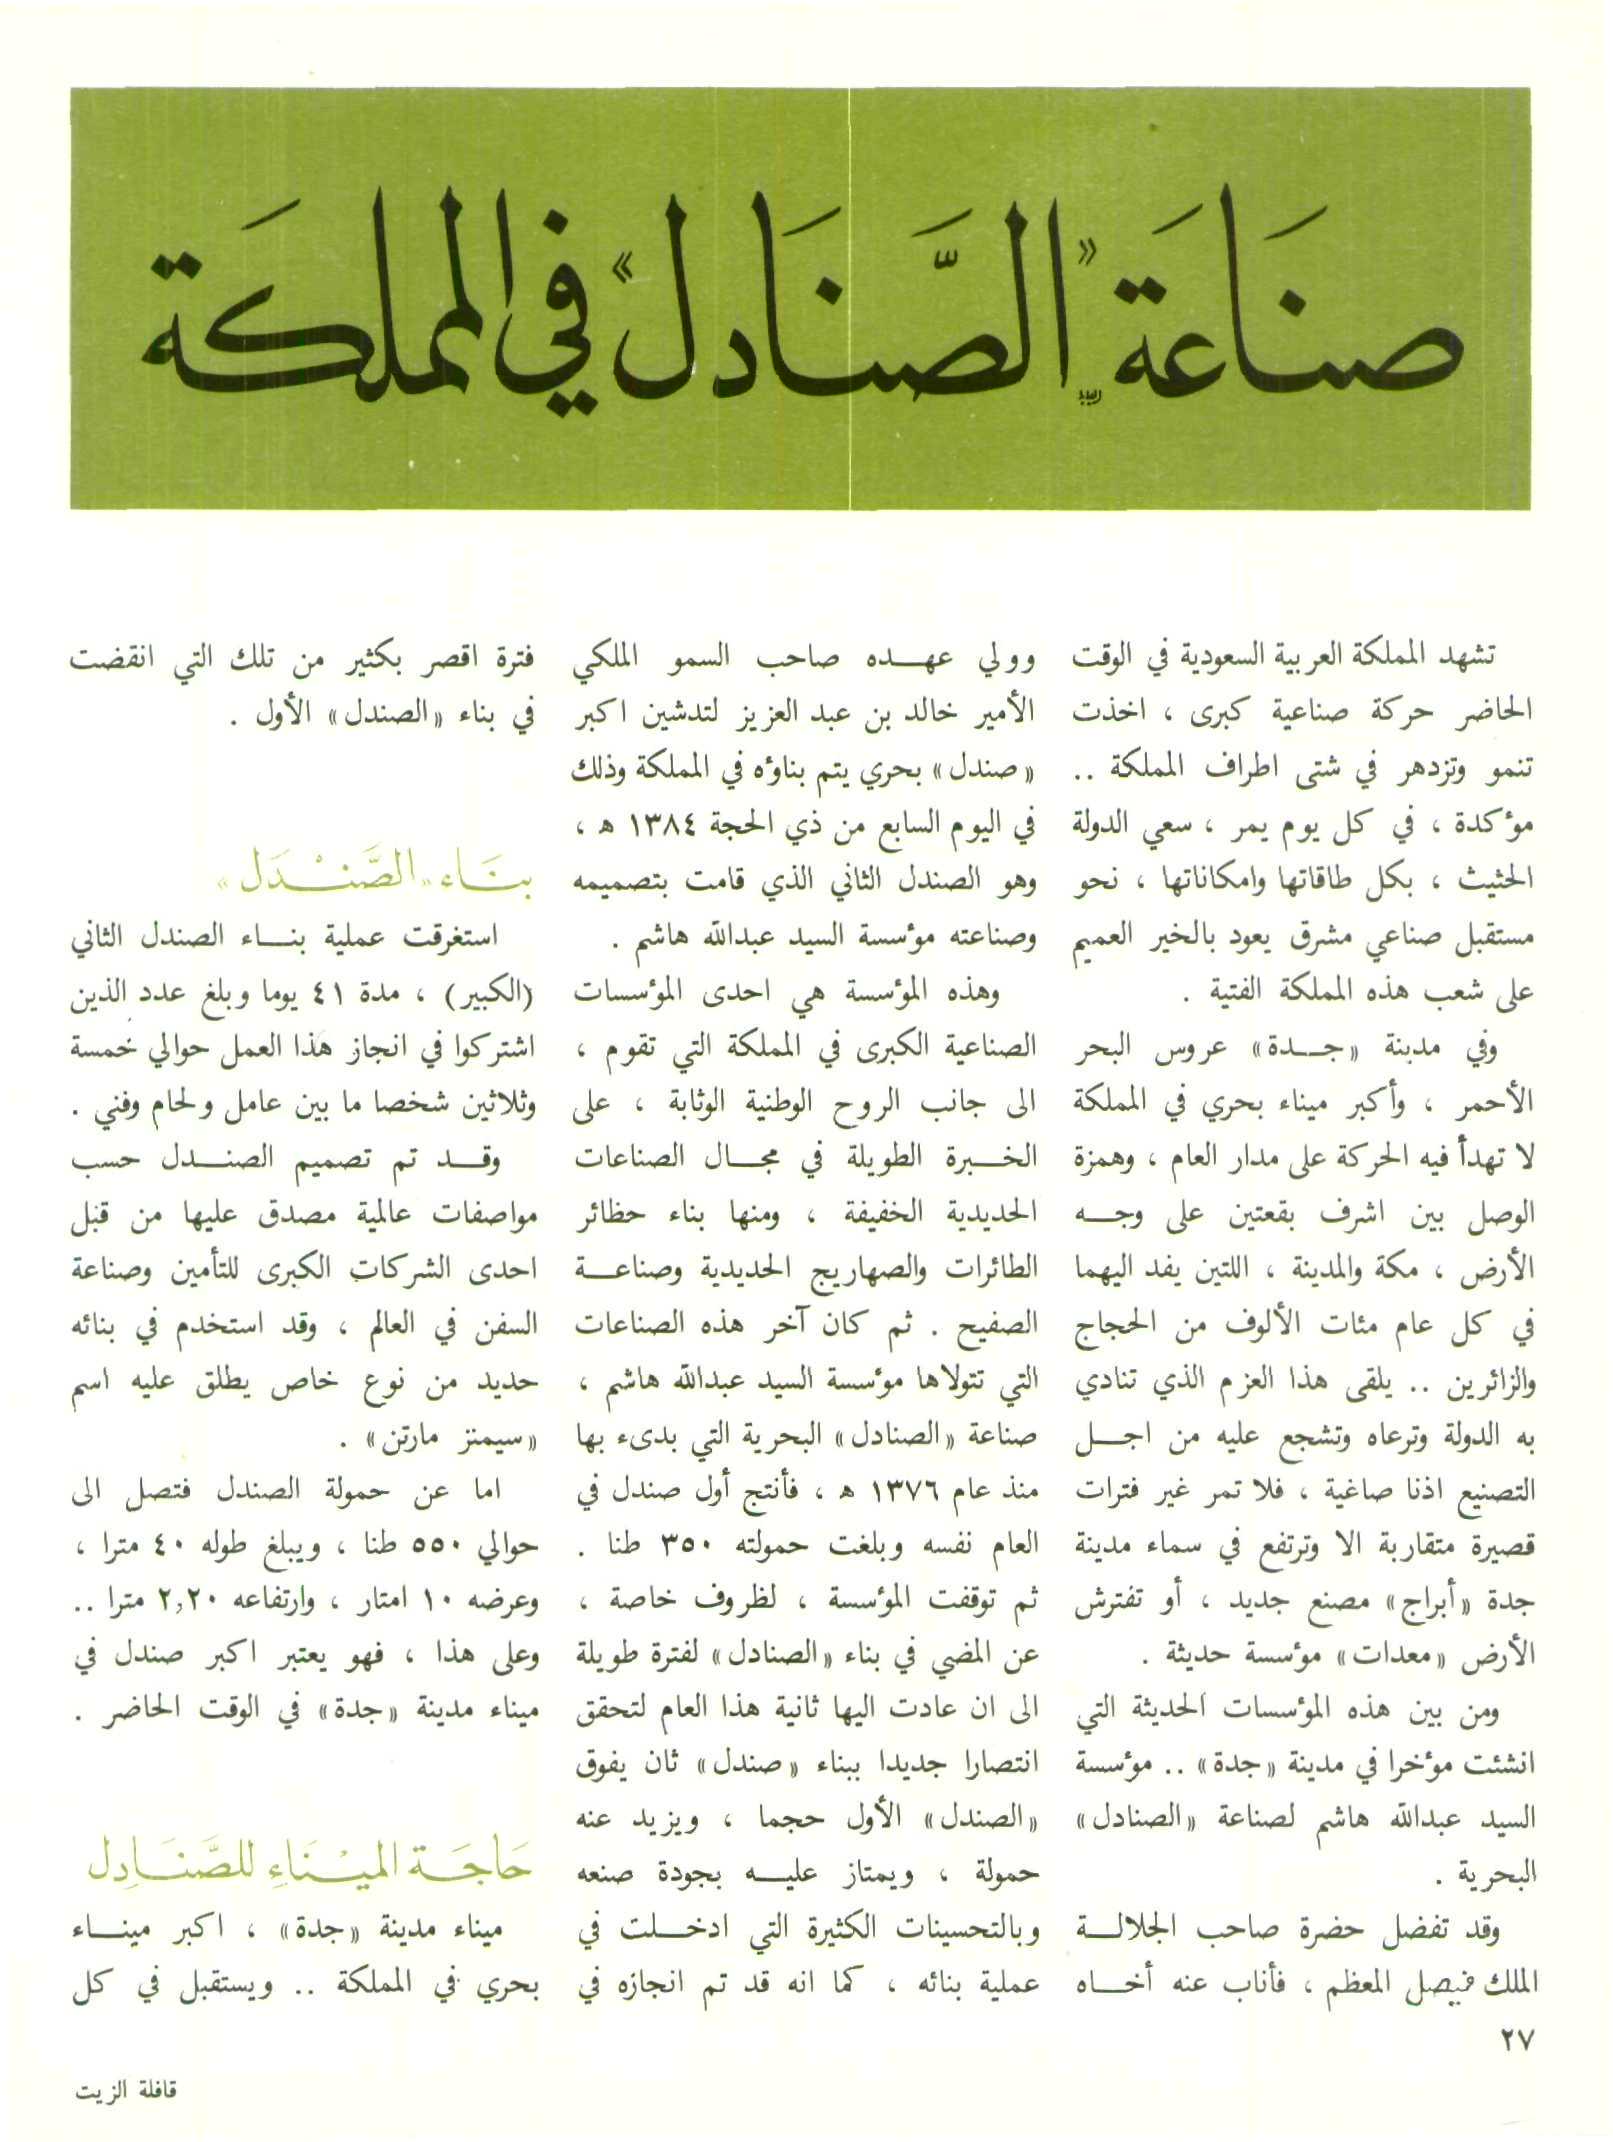 صناعة «الصنادل» في المملكة
تشهد المملكة العربية السعودية في الوقت
الحاضر حركة صناعية كبرى ، اخذت
تنمو وتزدهر في شتى اطراف المملكة ..
مؤكدة ، في كل يوم يمر ، سعي الدولة
الحثيث ، بكل طاقاتها وامكاناتها ، نحو
مستقبل صناعي مشرق يعود بالخير العميم
على شعب هذه المملكة الفتية .
وفي مدينة «جـدة» عروس البحر
الأحمر ، وأكبر ميناء بحري في المملكة
لا تهدأ فيه الحركة على مدار العام ، وهمزة
الوصل بين اشرف بقعتين على وجـه
الأرض ، مكة والمدينة ، اللتين يفد اليهما
في كل عام مئات الألوف من الحجاج
والزائرين .. يلقى هذا العزم الذي تنادي
به الدولة وترعاه وتشجع عليه من اجـل
التصنيع اذنا صاغية ، فلا تمر غير فترات
قصيرة متقاربة الا وترتفع في سماء مدينة
جدة «أبراج» مصنع جديد ، أو تفترش
الأرض «معدات» مؤسسة حديثة .
ومن بين هذه المؤسسات الحديثة التي
انشئت مؤخرا في مدينة «جدة» .. مؤسسة
السيد عبدالله هاشم لصناعة «الصنادل»
البحرية .
وقد تفضل حضرة صاحب الجلالـة
الملك فيصل المعظم ، فأناب عنه أخـاه
وولي عهـده صاحب السمو الملكي
الأمير خالد بن عبد العزيز لتدشين اكبر
«صندل» بحري يتم بناؤه في المملكة وذلك
في اليوم السابع من ذي الحجة ١٣٨٤ ه ،
وهو الصندل الثاني الذي قامت بتصميمه
وصناعته مؤسسة السيد عبدالله هاشم .
وهذه المؤسسة هي احدى المؤسسات
الصناعية الكبرى في المملكة التي تقوم ،
الى جانب الروح الوطنية الوثابة ، على
الخـبرة الطويلة في مجـال الصناعات
الحديدية الخفيفة ، ومنها بناء حظائر
الطائرات والصهاريج الحديدية وصناعـة
الصفيح . ثم كان آخر هذه الصناعات
التي تتولاها مؤسسة السيد عبدالله هاشم ،
صناعة «الصنادل» البحرية التي بدىء بها
منذ عام ١٣٧٦ ه ، فأنتج أول صندل في
العام نفسه وبلغت حمولته ٣٥٠ طنا .
ثم توقفت المؤسسة ، لظروف خاصة ،
عن المضي في بناء «الصنادل» لفترة طويلة
الى ان عادت اليها ثانية هذا العام لتحقق
انتصارا جديدا ببناء «صندل» ثان يفوق
«الصندل» الأول حجما ، ويزيد عنه
حمولة ، ويمتاز عليـه بجودة صنعه
وبالتحسينات الكثيرة التي ادخـلت في
عملية بنائه ، كما انه قد تم انجازه في
فترة اقصر بكثير من تلك التي انقضت
في بناء «الصندل» الأول .
بنَاء «الصَّنْدَل»
استغرقت عملية بنـاء الصندل الثاني
(الكبير) ، مدة ٤١ يوما وبلغ عدد الذين
اشتركوا في انجاز هذا العمل حوالي خمسة
وثلاثين شخصا ما بين عامل ولحام وفني .
وقـد تم تصميم الصنـدل حسب
مواصفات عالمية مصدق عليها من قبل
احدى الشركات الكبرى للتأمين وصناعة
السفن في العالم ، وقد استخدم في بنائه
حديد من نوع خاص يطلق عليه اسم
«سيمنز مارتن» .
اما عن حمولة الصندل فتصل الى
حوالي ٥٥٠ طنا ، ويبلغ طوله ٤٠ مترا ،
وعرضه ١٠ امتار ، وارتفاعه ٢,٢٠ مترا ..
وعلى هذا ، فهو يعتبر اكبر صندل في
ميناء مدينة «جدة» في الوقت الحاضر .
حَاجَة الميْنَاءِ للصَّنَادِل
ميناء مدينة «جدة» ، اكبر مينـاء
بحري في المملكة .. ويستقبل في كل
٢٧
قافلة الزيت